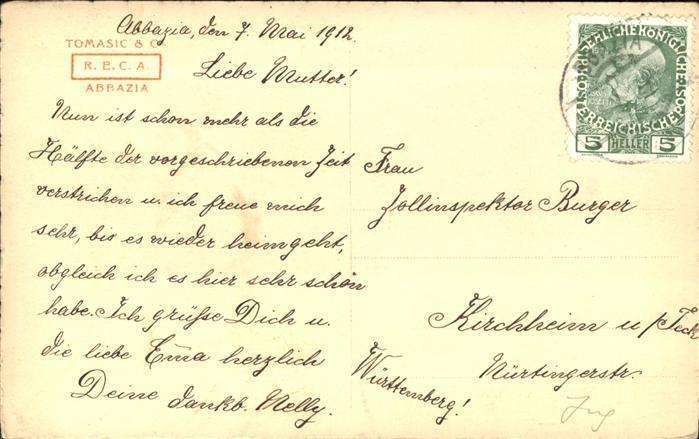 Abbazia, den 7. Mai 1912.
TOMASIC & C
R. E. C. A
ABBAZIA
Liebe Mutter!
Nun ist schon mehr als die
Hälfte der vorgeschriebenen Zeit
verstrichen u. ich freue mich
sehr, bis es wieder heimgeht,
obgleich ich es hier sehr schön
habe. Ich grüße Dich u.
die liebe Erna herzlich
Deine dankb. Nelly.
KAISERLICHE KÖNIGLICHE
ÖSTERREICHISCHE POST
5 HELLER 5
Frau
Zollinspektor Burger
Kirchheim u/Teck
Nürtingerstr.
Württemberg!